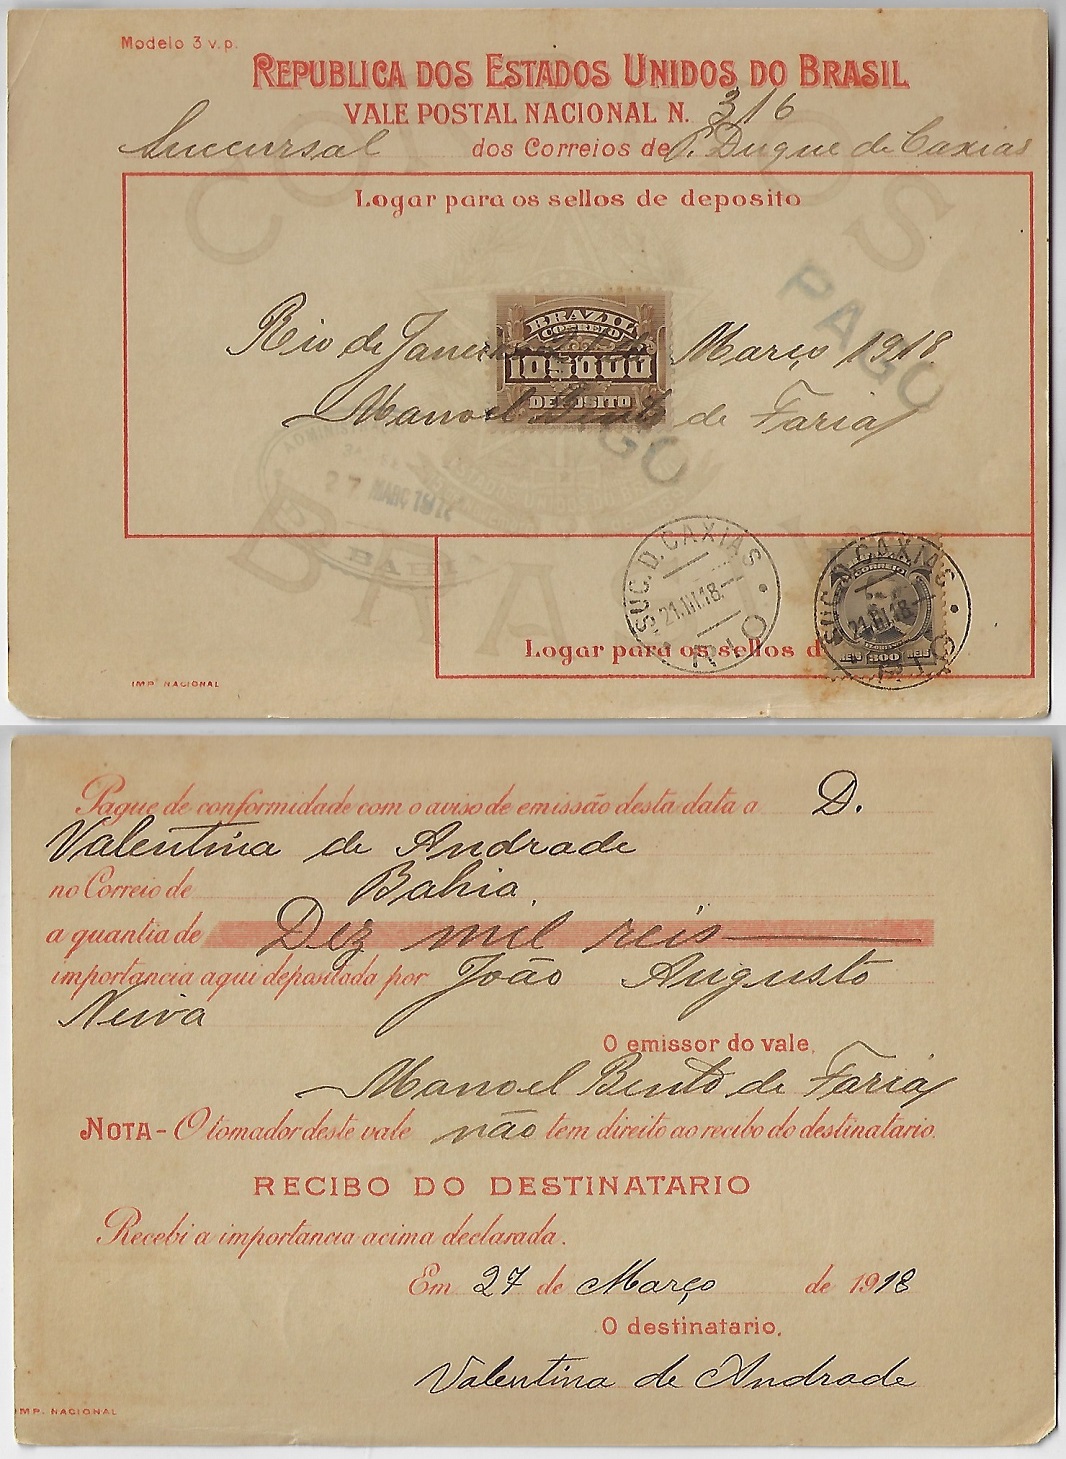 Modelo 3 v.p.
REPUBLICA DOS ESTADOS UNIDOS DO BRASIL
VALE POSTAL NACIONAL N. 316
Succursal dos Correios de P. Duque de Caxias
CORREIOS
Logar para os sellos de deposito
PAGO
BRAZIL
CORREIO
Rio de Janeiro Março 1918.
10$000
DEPOSITO
Manoel Bento de Faria
PAGO
27 MARÇ 1918
BAHIA
BRASIL
SUC. D. CAXIAS
21.III.18.
RIO
SUC. D. CAXIAS
CORREIO
21.III.18.
REIS 300 REIS
RIO
Logar para os sellos d
IMP. NACIONAL
Pague de conformidade com o aviso de emissão desta data a D.
Valentina de Andrade
no Correio de Bahia.
a quantia de Dez mil reis
importancia aqui depositada por João Augusto
Neiva
O emissor do vale,
Manoel Bento de Faria
NOTA - O tomador deste vale não tem direito ao recibo do destinatario.
RECIBO DO DESTINATARIO
Recebi a importancia acima declarada.
Em 27 de Março de 1918
O destinatario,
Valentina de Andrade
IMP. NACIONAL